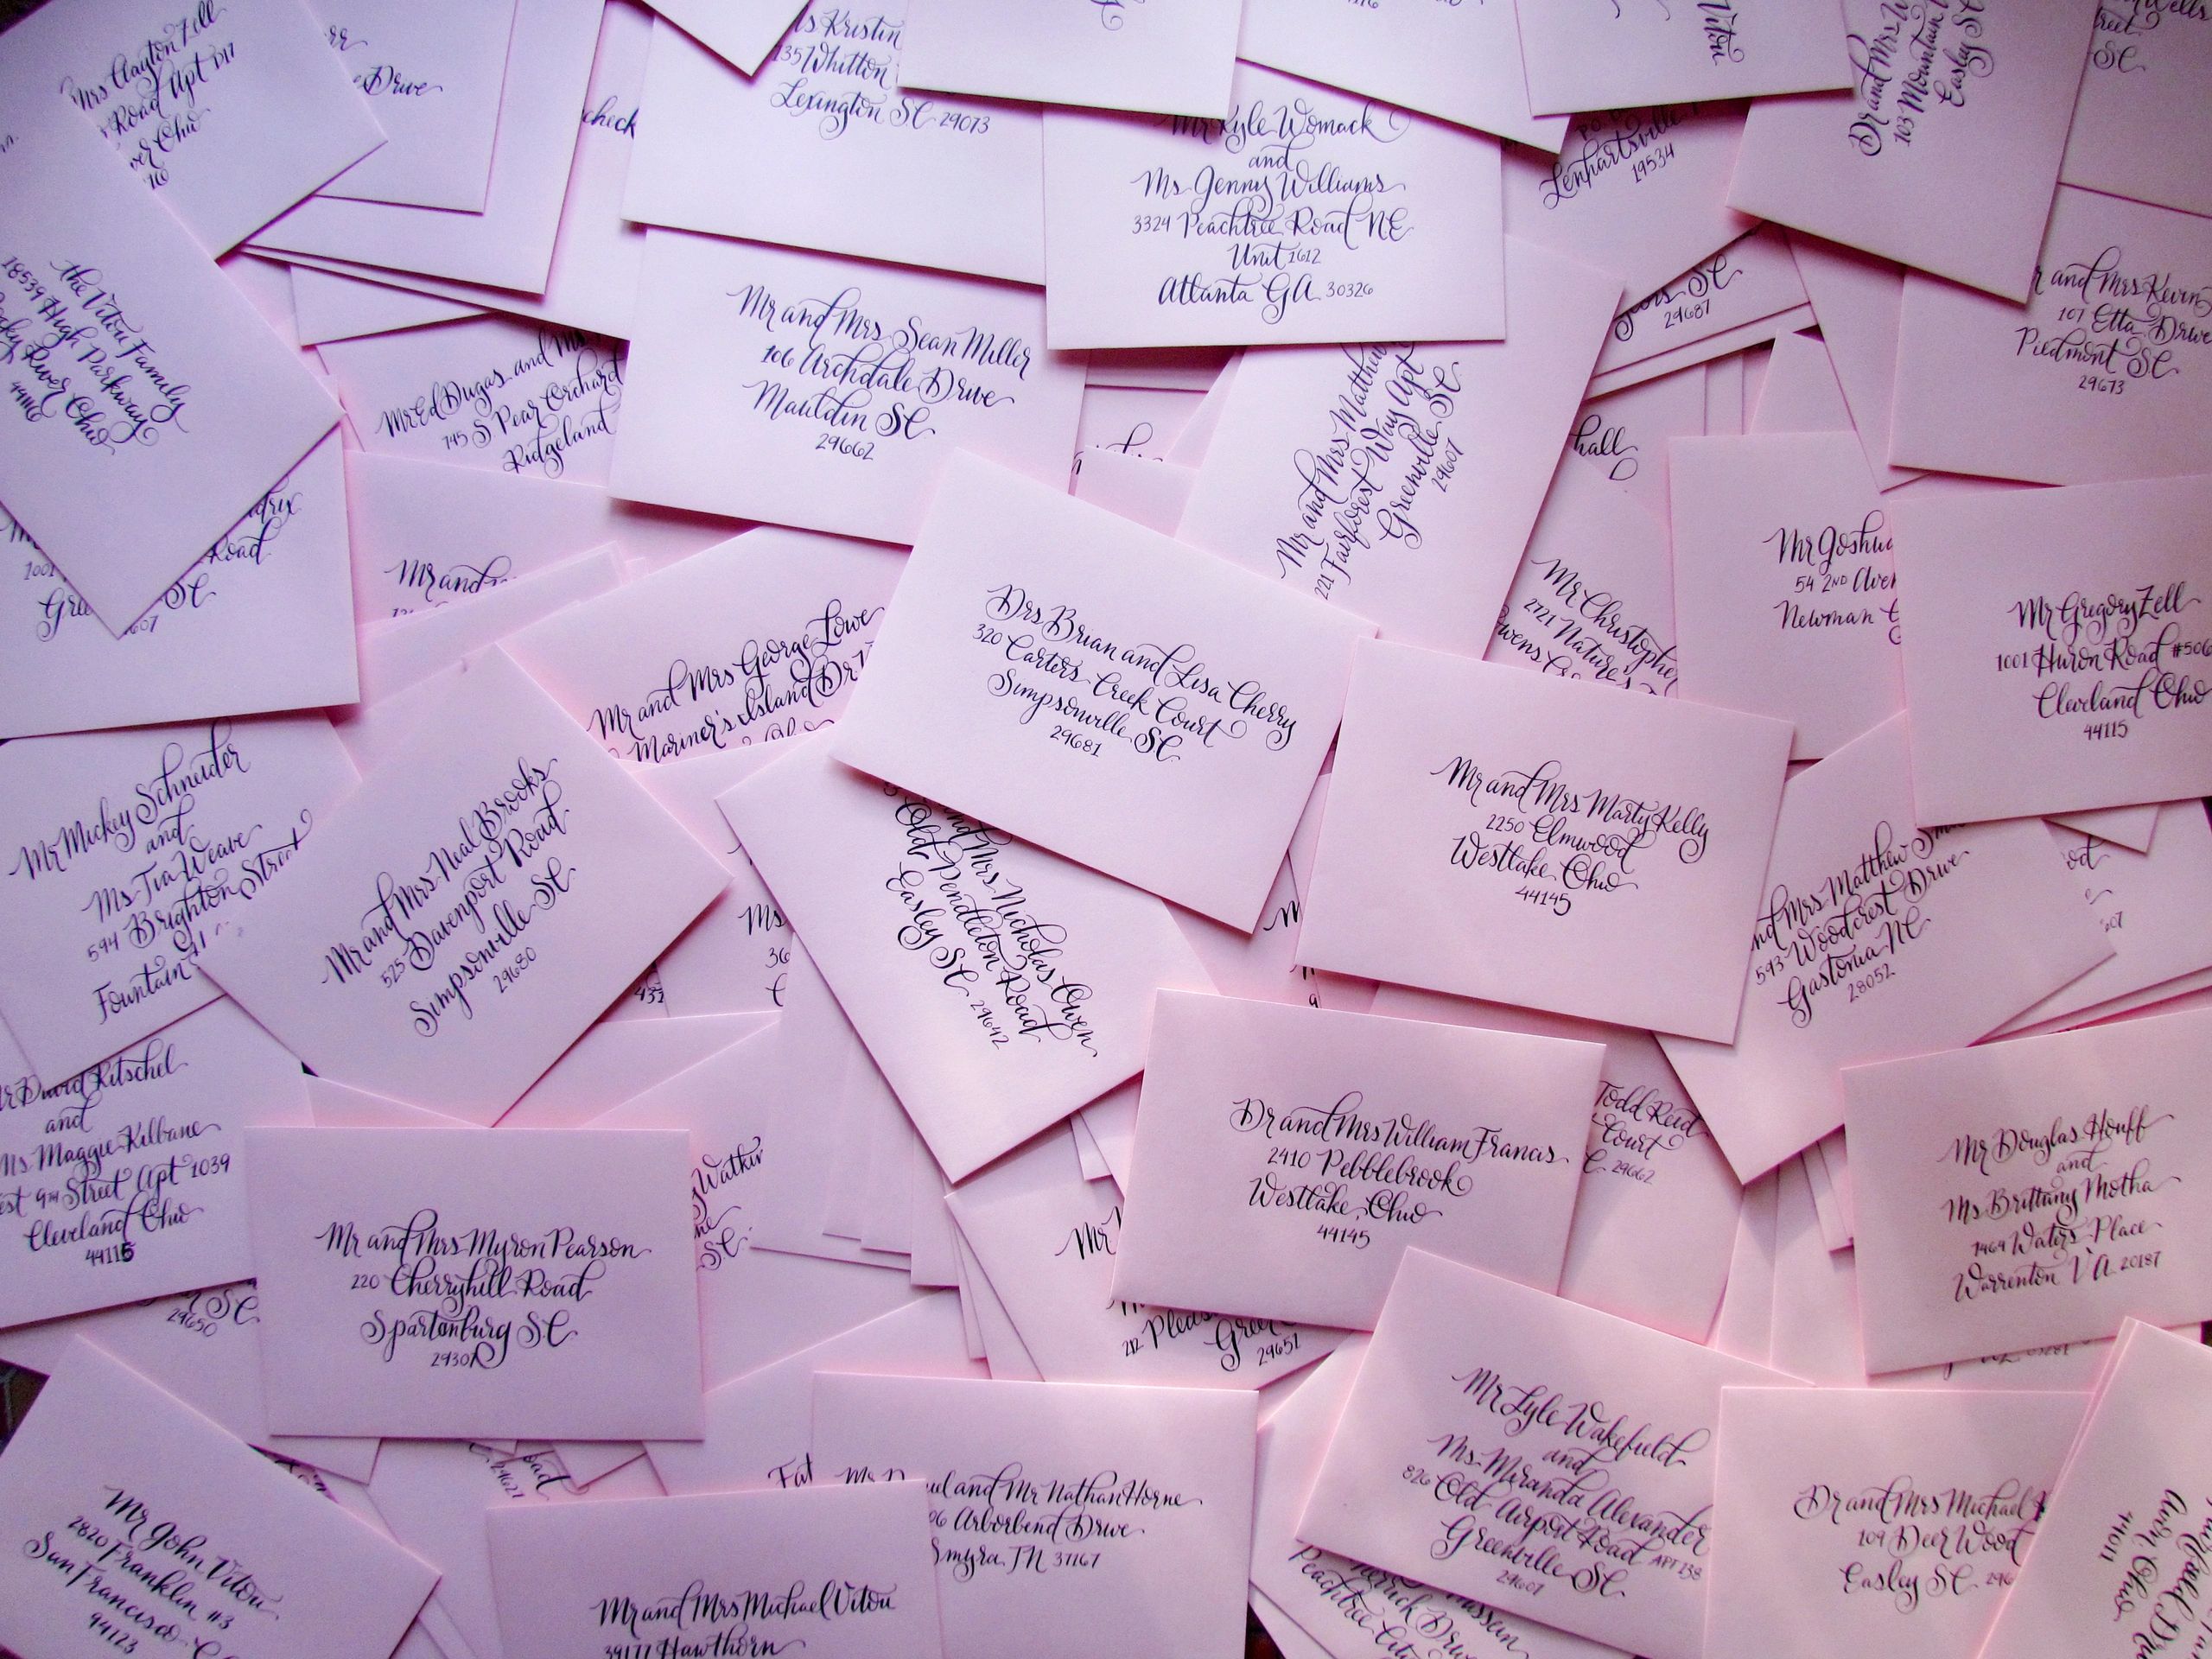 Mrs Clayton Zell
Road Apt D17
Drive
check
Kristin
135 Whitton
Lexington SC 29073
Mr Kyle Womack
and
Ms Jenny Williams
3324 Peachtree Road NE
Unit 1612
Atlanta GA 30326
Lenhartsville
19534
Dr and Mrs
103 Mountain
Easley SC
SC
the Vitou Family
18539 High Parkway
River Ohio
44116
Mr Ed Dugas and Ms
745 S Pear Orchard
Ridgeland
Mr and Mrs Sean Miller
106 Archdale Drive
Mauldin SC
29662
Mr and Mrs Matthew
221 Fairforest Way Apt
Greenville SC
29607
SC
29687
hall
and Mrs Kevin
107 Etta Drive
Piedmont SC
29673
Road
SC
1001
Mr and
Mr and Mrs George Lowe
Mariner's Island Dr
Drs Brian and Lisa Cherry
320 Carters Creek Court
Simpsonville SC
29681
Mr Christopher
2721 Natures
Mr Joshua
54 2ND Aven
Newman
Mr Gregory Zell
1001 Huron Road #506
Cleveland Ohio
44115
Mr Mickey Schneider
and
Ms Tia Weave
594 Brighton Street
Fountain
Mr and Mrs Neal Brooks
525 Davenport Road
Simpsonville SC
29680
Ms
36
and Mrs Nicholas Owen
Old Pendleton Road
Easley SC 29642
Mr and Mrs Marty Kelly
2250 Elmwood
Westlake Ohio
44145
and Mrs Matthew
593 Woodcrest Drive
Gastonia NC
28052
David Ritschel
and
Ms Maggie Kilbane
9TH Street Apt 1039
Cleveland Ohio
44115
SC
29650
Mr and Mrs Myron Pearson
220 Cherryhill Road
Spartanburg SC
29307
SC
Mr
212
29651
Dr and Mrs William Francis
2410 Pebblebrook
Westlake, Ohio
44145
Todd Reid
Court
29662
Mr Douglas Houff
and
Ms Brittany Motha
7464 Waters Place
Warrenton VA 20187
Mr John Vitou
2820 Franklin #3
San Francisco
94123
Mr and Mrs Michael Vitou
Hawthorn
and Mr Nathan Horne
Arborbend Drive
Smyra, TN 37167
Mr Lyle Wakefield
and
Ms Miranda Alexander
826 Old Airport Road APT 138
Greenville SC
29607
Peachtree City
Dr and Mrs Michael
109 Deer Wood
Easley SC 296
44011